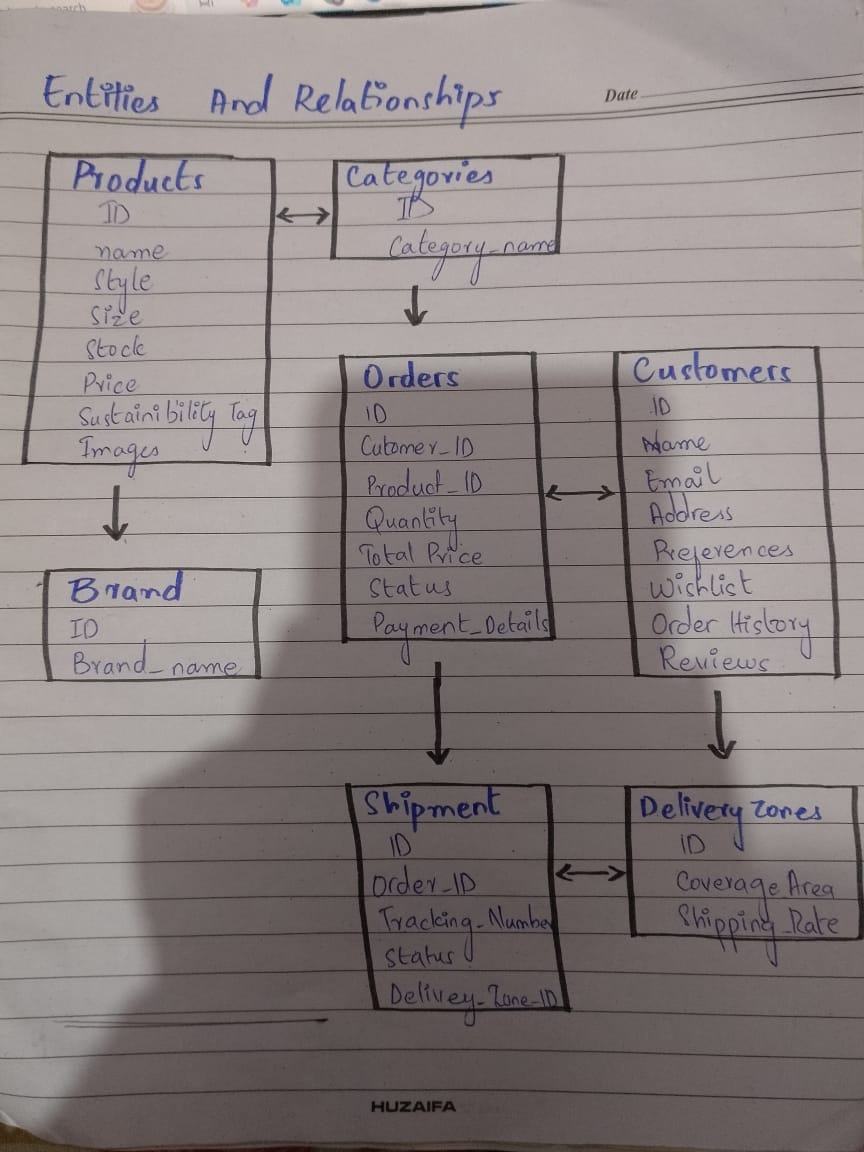 Entities And Relationships
Date
Products
ID
name
Style
Size
Stock
Price
Sustainibility Tag
Images
Categories
ID
Category_name
Orders
ID
Cutomer_ID
Product_ID
Quantity
Total Price
Status
Payment_Details
Customers
ID
Name
Email
Address
Preferences
Wishlist
Order History
Reviews
Brand
ID
Brand_name
Shipment
ID
Order_ID
Tracking_Number
Status
Delivey_Zone_ID
Delivery Zones
ID
Coverage Area
Shipping_Rate
HUZAIFA